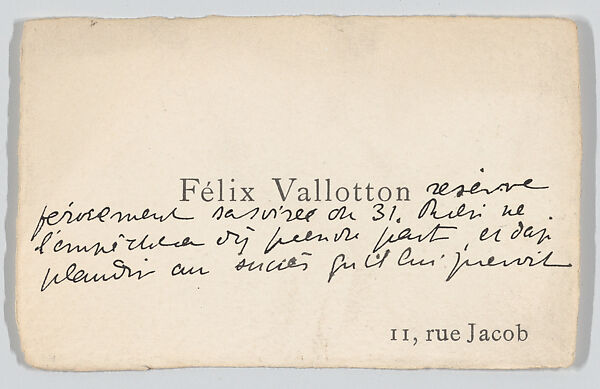 Félix Vallotton reserve
férocement sa soirée du 31. Rien ne
l'empêchera d'y prendre part, et d'ap
plaudir au succès qu'il lui prévoit
11, rue Jacob